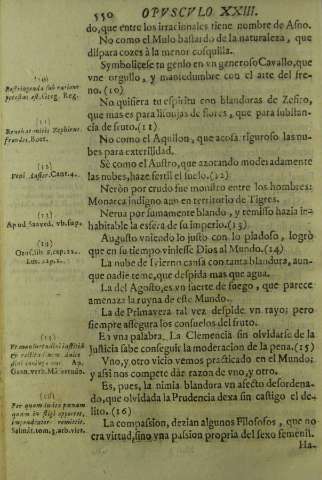 550 OPVSCVLO XXIII.
do, que entre los irracionales tiene nombre de Asno.
No como el Mulo bastardo de la naturaleza, que
dispara cozes à la menor cosquilla.
Symbolizese tu genio en vn generoso Cavallo, que
vne orgullo, y mansedumbre con el arte del fre-
no. (10)
No quisiera tu espiritu con blanduras de Zefiro,
que mas es para lisonjas de flores, que para substan-
cia de fruto. (11)
No como el Aquilon, que acosa riguroso las nu-
bes para exterilidad.
Sè como el Austro, que azotando moderadamente
las nubes, haze fertil el suelo. (12)
Neròn por crudo fue monstro entre los hombres:
Monarca indigno aun en territorio de Tigres.
Nerua por sumamente blando, y remisso hazia in-
habitable la esfera de su imperio. (13)
Augusto vniendo lo justo con lo piadoso, logrò
que en su tiempo viniesse Dios al Mundo. (14)
La nube de Ivierno cansa con tanta blandura, aun-
que nadie teme, que despida mas que agua.
La del Agosto, es vn fuerte de fuego, que parece
amenaza la ruyna de este Mundo.
La de Primavera tal vez despide vn rayo; pero
siempre assegura los consuelos del fruto.
Es vna palabra, La Clemencia sin olvidarse de la
Justicia sabe conseguir la moderacion de la pena. (15)
Vno, y otro vicio vemos practicado en el Mundo;
y assi nos compete dàr razon de vno, y otro.
Es, pues, la nimia blandura vn afecto desordena-
do, que olvidada la Prudencia dexa sin castigo el de-
lito. (16)
La compassion, dezian algunos Filosofos, que no
era virtud, sino vna passion propria del sexo femenil.
Ha-
(10)
Restringenda sub ratione
potestas est. Greg. Reg.
(11)
Revehat mitis Zephirus
frondes. Boet.
(12)
Veni Auster. Cant. 4.
(13)
Apud Saaved. vb. sup.
(14)
Oros. lib. 6. cap. 22.
Luc. cap. 2.
(15)
(16)
Per quam iudex pœnam